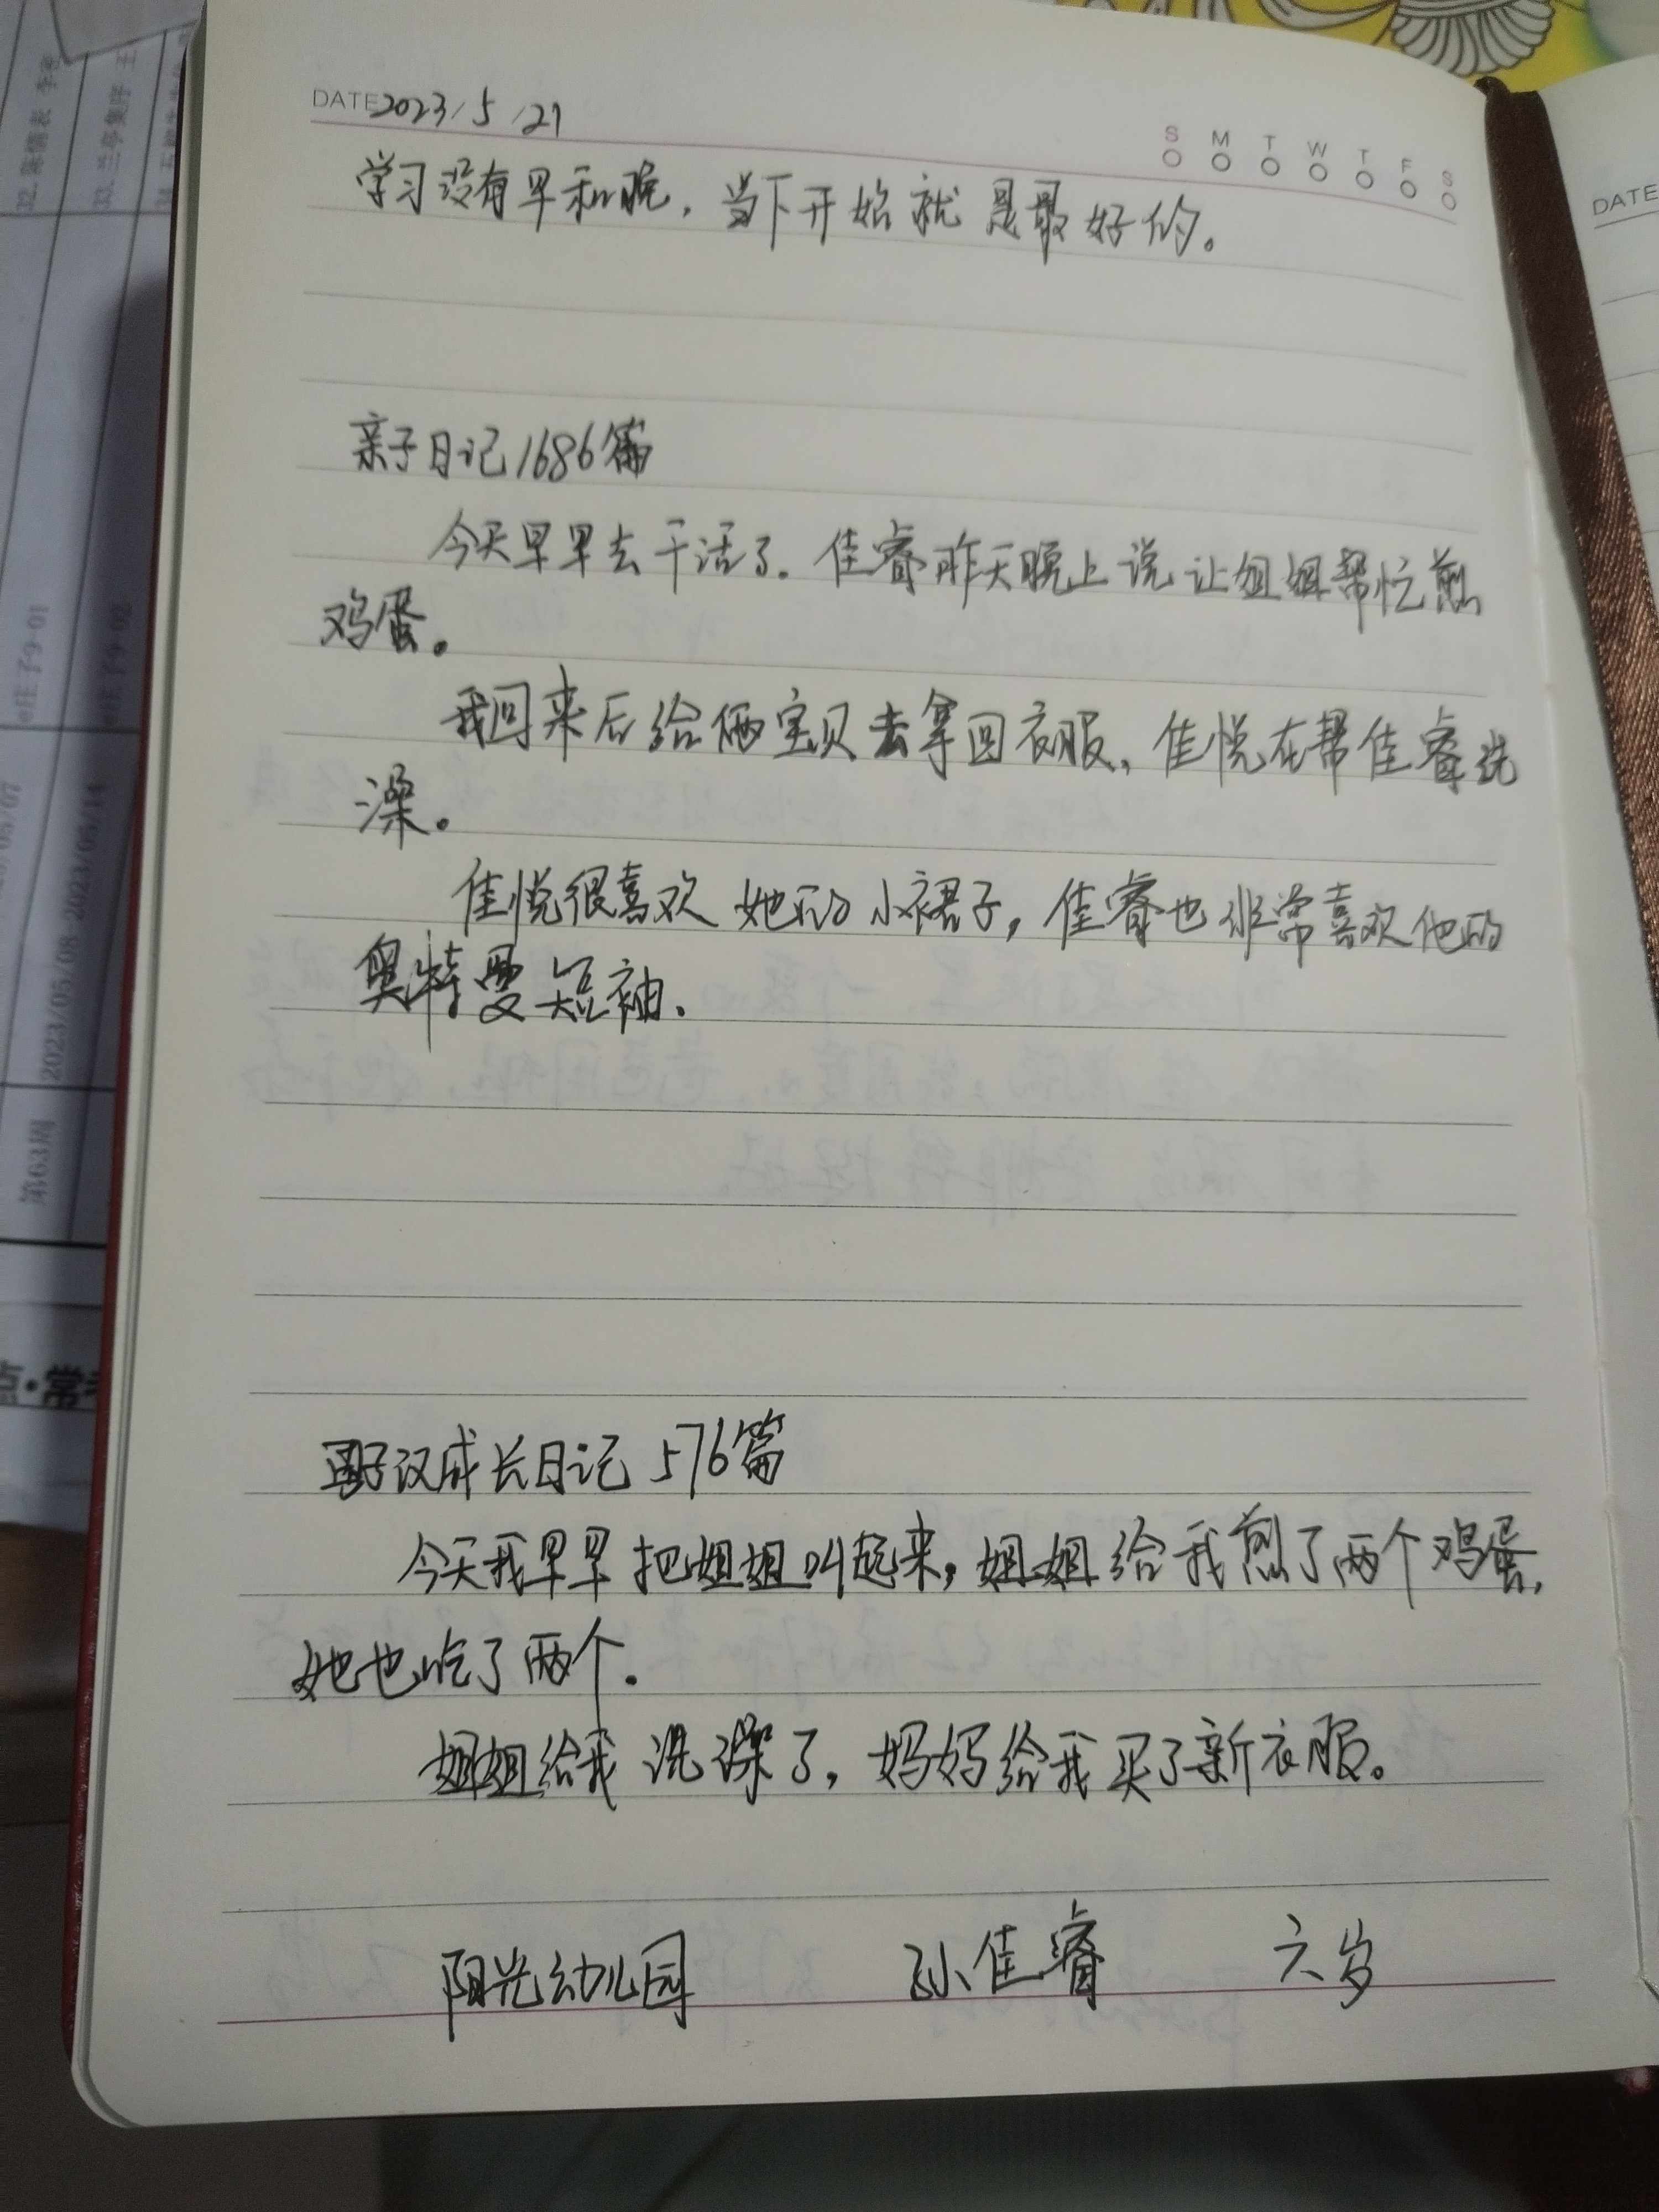 DATE 2023/5/21
S M T W T F S
学习没有早和晚，当下开始就是最好的。
亲子日记1686篇
今天早早去干活了.佳睿昨天晚上说让姐姐帮忙煎
鸡蛋。
我回来后给俩宝贝去拿回衣服，佳悦在帮佳睿洗
澡。
佳悦很喜欢她的小裙子，佳睿也非常喜欢他的
奥特曼短袖.
男子汉成长日记 576篇
今天我早早把姐姐叫起来，姐姐给我煎了两个鸡蛋，
她也吃了两个.
姐姐给我洗澡了，妈妈给我买了新衣服。
阳光幼儿园 孙佳睿 六岁
DATE
第63周 2023/05/08 2023/05/14
点·常考